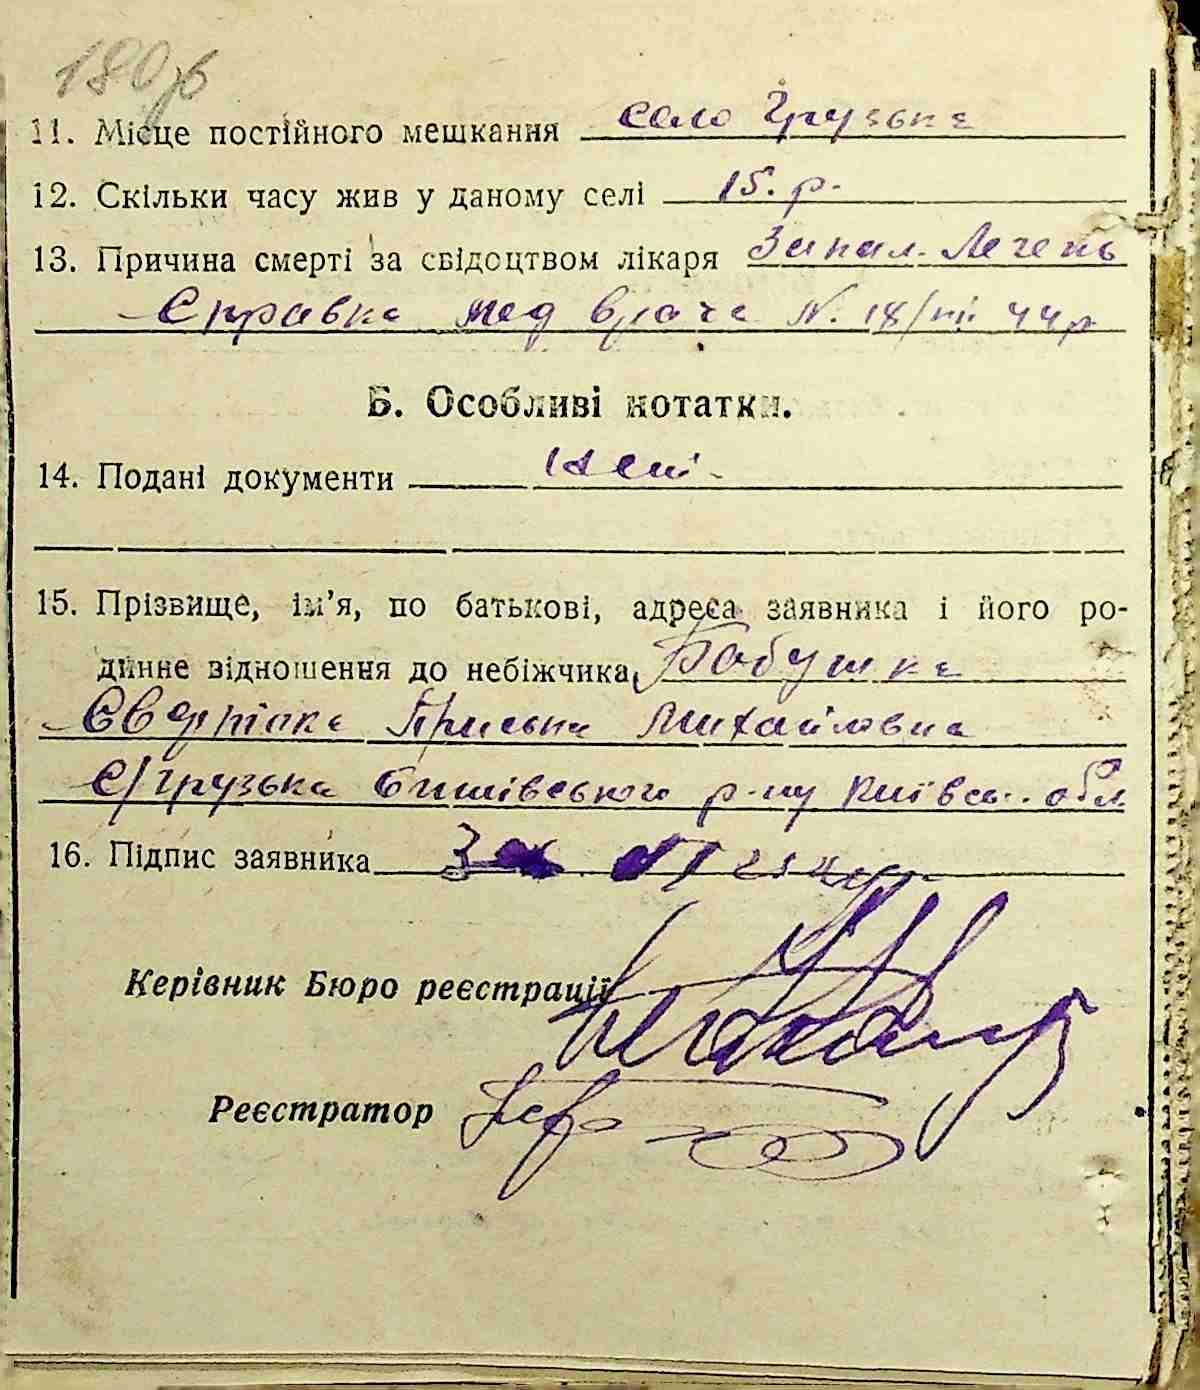 180зв
11. Місце постійного мешкання село Грузьке
12. Скільки часу жив у даному селі 15. р.
13. Причина смерті за свідоцтвом лікаря Запал. Легень
Справка мед врача N. 18/VII 44р
Б. Особливі нотатки.
14. Подані документи
15. Прізвище, ім'я, по батькові, адреса заявника і його ро-
динне відношення до небіжчика Бабушка
Приська Михайловна
с/Грузька Бишівського р-ну Київсь.. обл
16. Підпис заявника
Керівник Бюро реєстрації
Реєстратор